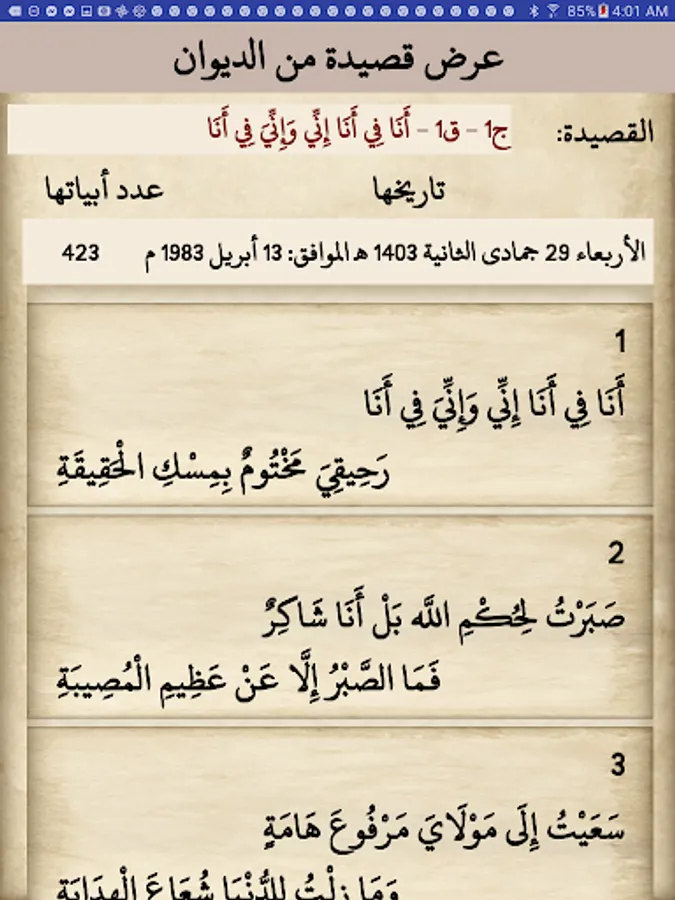 85% 4:01 AM
عرض قصيدة من الديوان
القصيدة: ج1 - ق1 - أَنَا فِي أَنَا إِنِّي وَإِنِّيَ فِي أَنَا
تاريخها عدد أبياتها
الأربعاء 29 جمادى الثانية 1403 هـ الموافق: 13 أبريل 1983 م 423
1
أَنَا فِي أَنَا إِنِّي وَإِنِّيَ فِي أَنَا
رَحِيقِيَ مَخْتُومٌ بِمِسْكِ الْحَقِيقَةِ
2
صَبَرْتُ لِحُكْمِ اللَّه بَلْ أَنَا شَاكِرٌ
فَمَا الصَّبْرُ إِلَّا عَنْ عَظِيمِ الْمُصِيبَةِ
3
سَعَيْتُ إِلَى مَوْلَايَ مَرْفُوعَ هَامَةٍ
وَمَا زِلْتُ لِلدُّنْيَا شُعَاعَ الْهِدَايَةِ